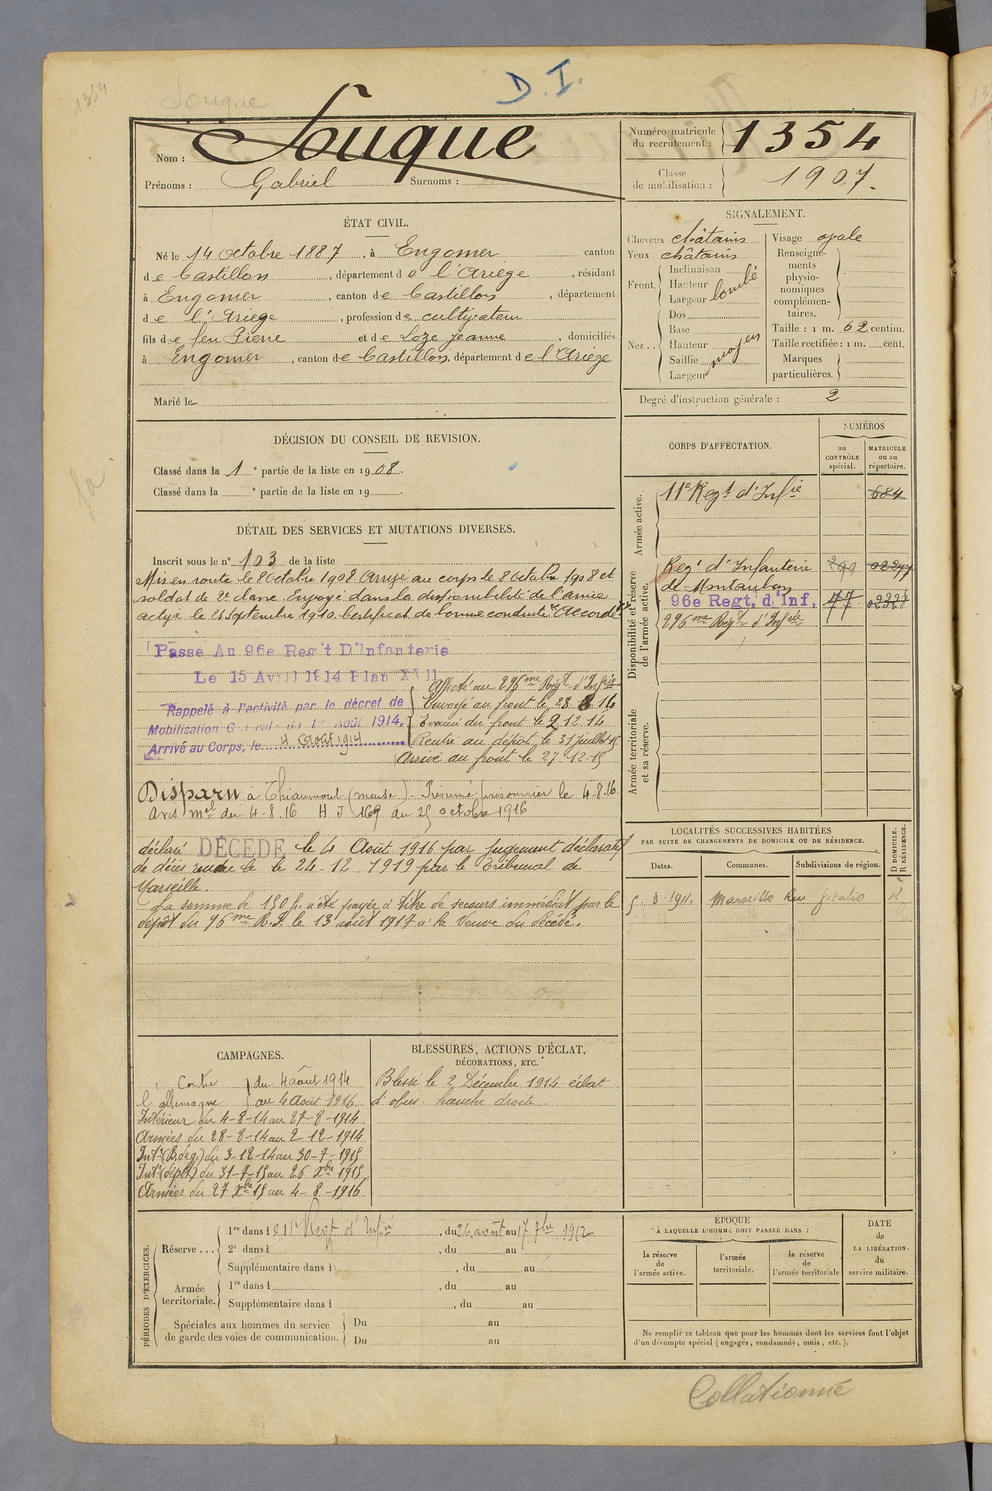 1354
Souque
D. I.
Nom : Souque
Prénoms : Gabriel Surnoms :
Numéro matricule du recrutement : 1354
Classe de mobilisation : 1907.
ÉTAT CIVIL.
Né le 14 Octobre 1887, à Engomer canton
de Castillon, département de l'Ariège, résidant
à Engomer, canton de Castillon, département
de l'Ariège, profession de cultivateur
fils de feu Pierre et de Loze Jeanne, domiciliés
à Engomer, canton de Castillon, département de l'Ariège
Marié le
SIGNALEMENT.
Cheveux châtains
Yeux châtains
Front. Inclinaison
Hauteur
Largeur
bombé
Nez.. Dos
Base
Hauteur
Saillie
Largeur
moyen
Visage ovale
Renseignements physionomiques complémentaires.
Taille : 1 m. 62 centim.
Taille rectifiée : 1 m. cent.
Marques particulières.
Degré d'instruction générale : 2
DÉCISION DU CONSEIL DE REVISION.
Classé dans la 1e partie de la liste en 1908.
Classé dans la e partie de la liste en 19
DÉTAIL DES SERVICES ET MUTATIONS DIVERSES.
Inscrit sous le n° 103 de la liste
Mis en route le 8 Octobre 1908 Arrivé au corps le 8 Octobre 1908 et
soldat de 2e classe. Envoyé dans la disponibilité de l'armée
active le 25 Septembre 1910. Certificat de bonne conduite "Accordé"
Passe Au 96e Reg't D'Infanterie
Le 15 Avril 1914 Plan XVII
Rappelé à l'activité par le décret de
Mobilisation Générale du 1er Août 1914,
Arrivé au Corps, le 4 Août 1914
Affecté au 296me Régt d'Infrie
Envoyé au front le 28 8 14
Evacué du front le 2 12 14
Rentré au dépôt le 31 juillet 15
Arrivé au front le 27-12-15
Disparu à Thiaumont (Meuse) - Présumé prisonnier le 4.8.16.
Avis mel du 4.8.16 H J 169 du 25 octobre 1916
déclaré DÉCÉDÉ le 4 Août 1916 par jugement déclaratif
de décès rendu le 24-12-1919 par le Tribunal de
Marseille.
La somme de 150 f. a été payée à titre de secours immédiat par le
dépôt du 96me R.I. le 13 août 1917 à la Veuve du décédé.
CORPS D'AFFECTATION.
NUMÉROS
au CONTRÔLE spécial.
MATRICULE ou au répertoire.
Armée active.
11e Regt d'Infie 684
Disponibilité et réserve de l'armée active.
Regt d'Infanterie
de Montauban
96e Regt, d'Inf, 77
296me Régt d'Infrie
Armée territoriale et sa réserve.
LOCALITÉS SUCCESSIVES HABITÉES
PAR SUITE DE CHANGEMENTS DE DOMICILE OU DE RÉSIDENCE.
Dates. Communes. Subdivisions de région. D DOMICILE. R RÉSIDENCE.
5 3 1911. Marseille Rue R
CAMPAGNES.
Contre l'allemagne du 4 août 1914
au 4 Août 1916
Intérieur du 4-8-14 au 27-8-1914
Armées du 28-8-14 au 2-12-1914
Intr (Bdég.) du 3-12-14 au 30-7-1915
Intr (dépôt) du 31-7-15 au 26 Xbre 1915
Armées du 27 Xbre 15 au 4-8-1916
BLESSURES, ACTIONS D'ÉCLAT,
DÉCORATIONS, ETC.
Blessé le 2 Décembre 1914 éclat
d'obus hanche droite
PÉRIODES D'EXERCICES.
Réserve... 1re dans l e 11e Regt d'Infrie, du 26 août au 17 7bre 1912
2e dans l , du au
Supplémentaire dans l , du au
Armée territoriale. 1re dans l , du au
Supplémentaire dans l , du au
Spéciales aux hommes du service de garde des voies de communication. Du au
Du au
ÉPOQUE
À LAQUELLE L'HOMME DOIT PASSER DANS :
la réserve de l'armée active.
l'armée territoriale.
la réserve de l'armée territoriale
DATE de LA LIBÉRATION du service militaire.
Ne remplir ce tableau que pour les hommes dont les services font l'objet
d'un décompte spécial (engagés, condamnés, omis, etc.).
Collationné